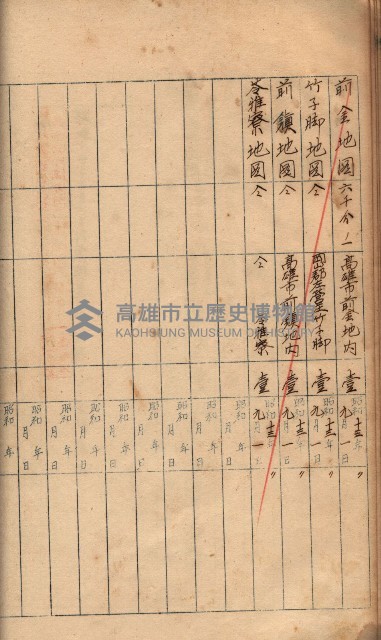 前金地圖 六千分ノ一 高雄市前金地内 壹 昭和十三年九月一日 〃
竹子脚地圖 仝 岡山郡左營庄竹子脚 壹 昭和十三年九月一日 〃
前鎮地圖 仝 高雄市前鎮地内 壹 昭和十三年九月一日 〃
苓雅寮地圖 仝 仝 苓雅寮 壹 昭和十三年九月一日 〃
昭和 年 月 日
昭和 年 月 日
昭和 年 月 日
昭和 年 月 日
昭和 年 月 日
昭和 年 月 日
昭和 年 月 日
昭和 年 月 日
高雄市立歷史博物館
KAOHSIUNG MUSEUM OF HISTORY